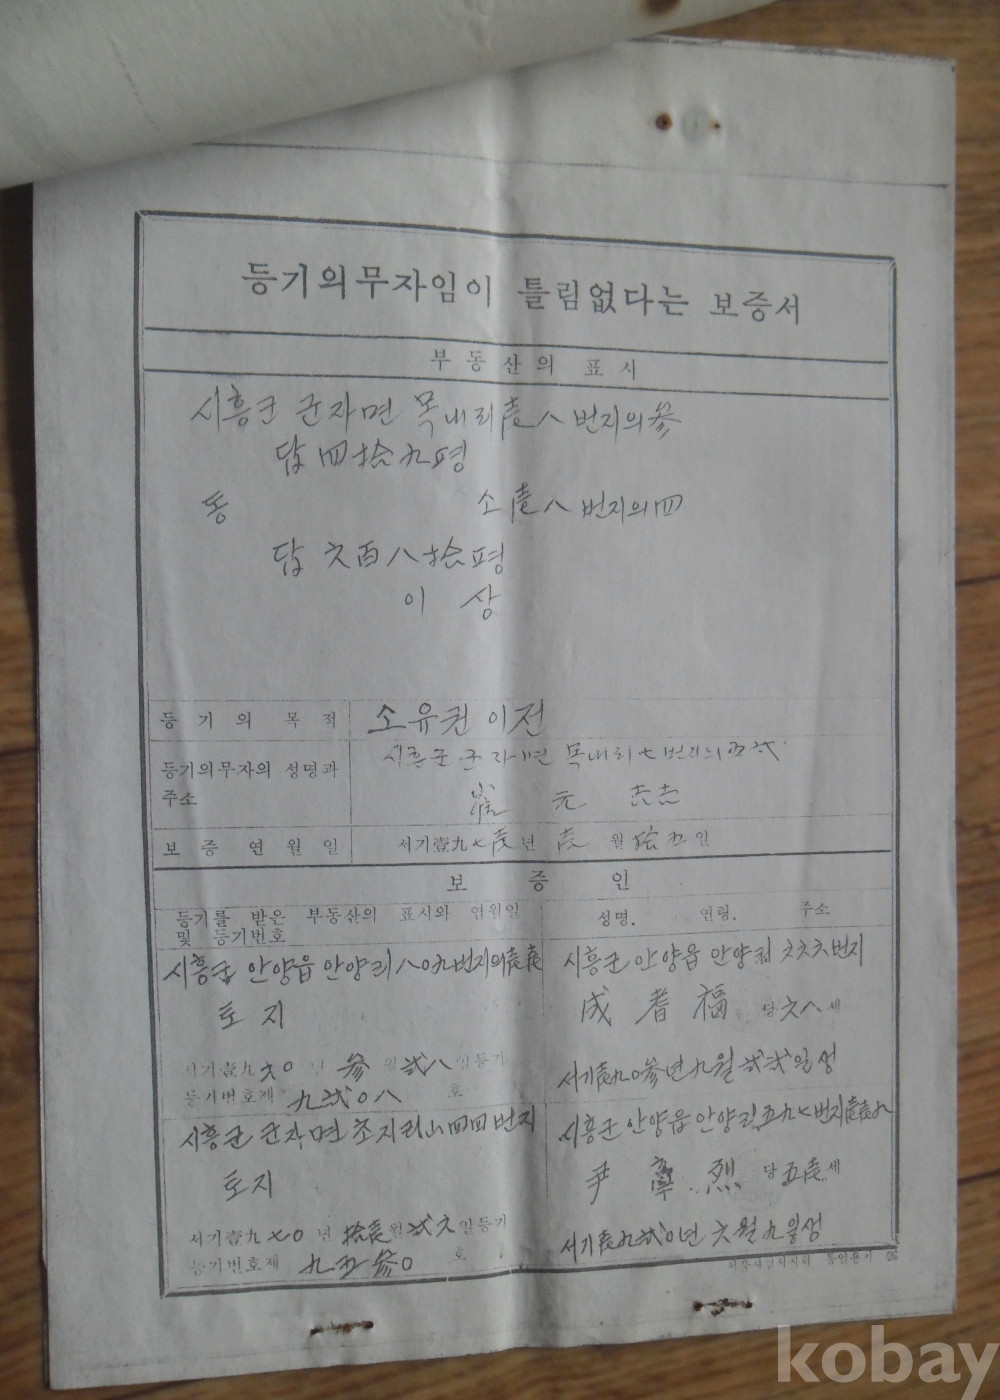 등기의무자임이 틀림없다는 보증서
부동산의 표시
시흥군 군자면 목내리 壹八번지의 參
답 四拾九평
동 소 壹八번지의 四
답 六百八拾평
이 상
등기의 목적 소유권 이전
등기의무자의 성명과 주소 시흥군 군자면 목내리 七번지의 五貳
崔 元
보증 연월일 서기壹九七壹年 壹월 拾五일
보증인
등기를 받은 부동산의 표시와 연월일 및 등기번호
성명. 연령. 주소
시흥군 안양읍 안양리 八0九번지의 壹壹
토지
서기壹九六0년 參월 貳八일등기
등기번호제 九貳0八호
시흥군 안양읍 안양리 六六六번지
成 者 福 당 六八세
서기壹九0參년 九월 貳貳일생
시흥군 군자면 초지리 山四四번지
토지
서기壹九七0년 拾壹월 貳六일등기
등기번호제 九五參0호
시흥군 안양읍 안양리 五九七번지 壹壹九
尹 烈 당 五壹세
서기壹九貳0년 六월 九일생
kobay